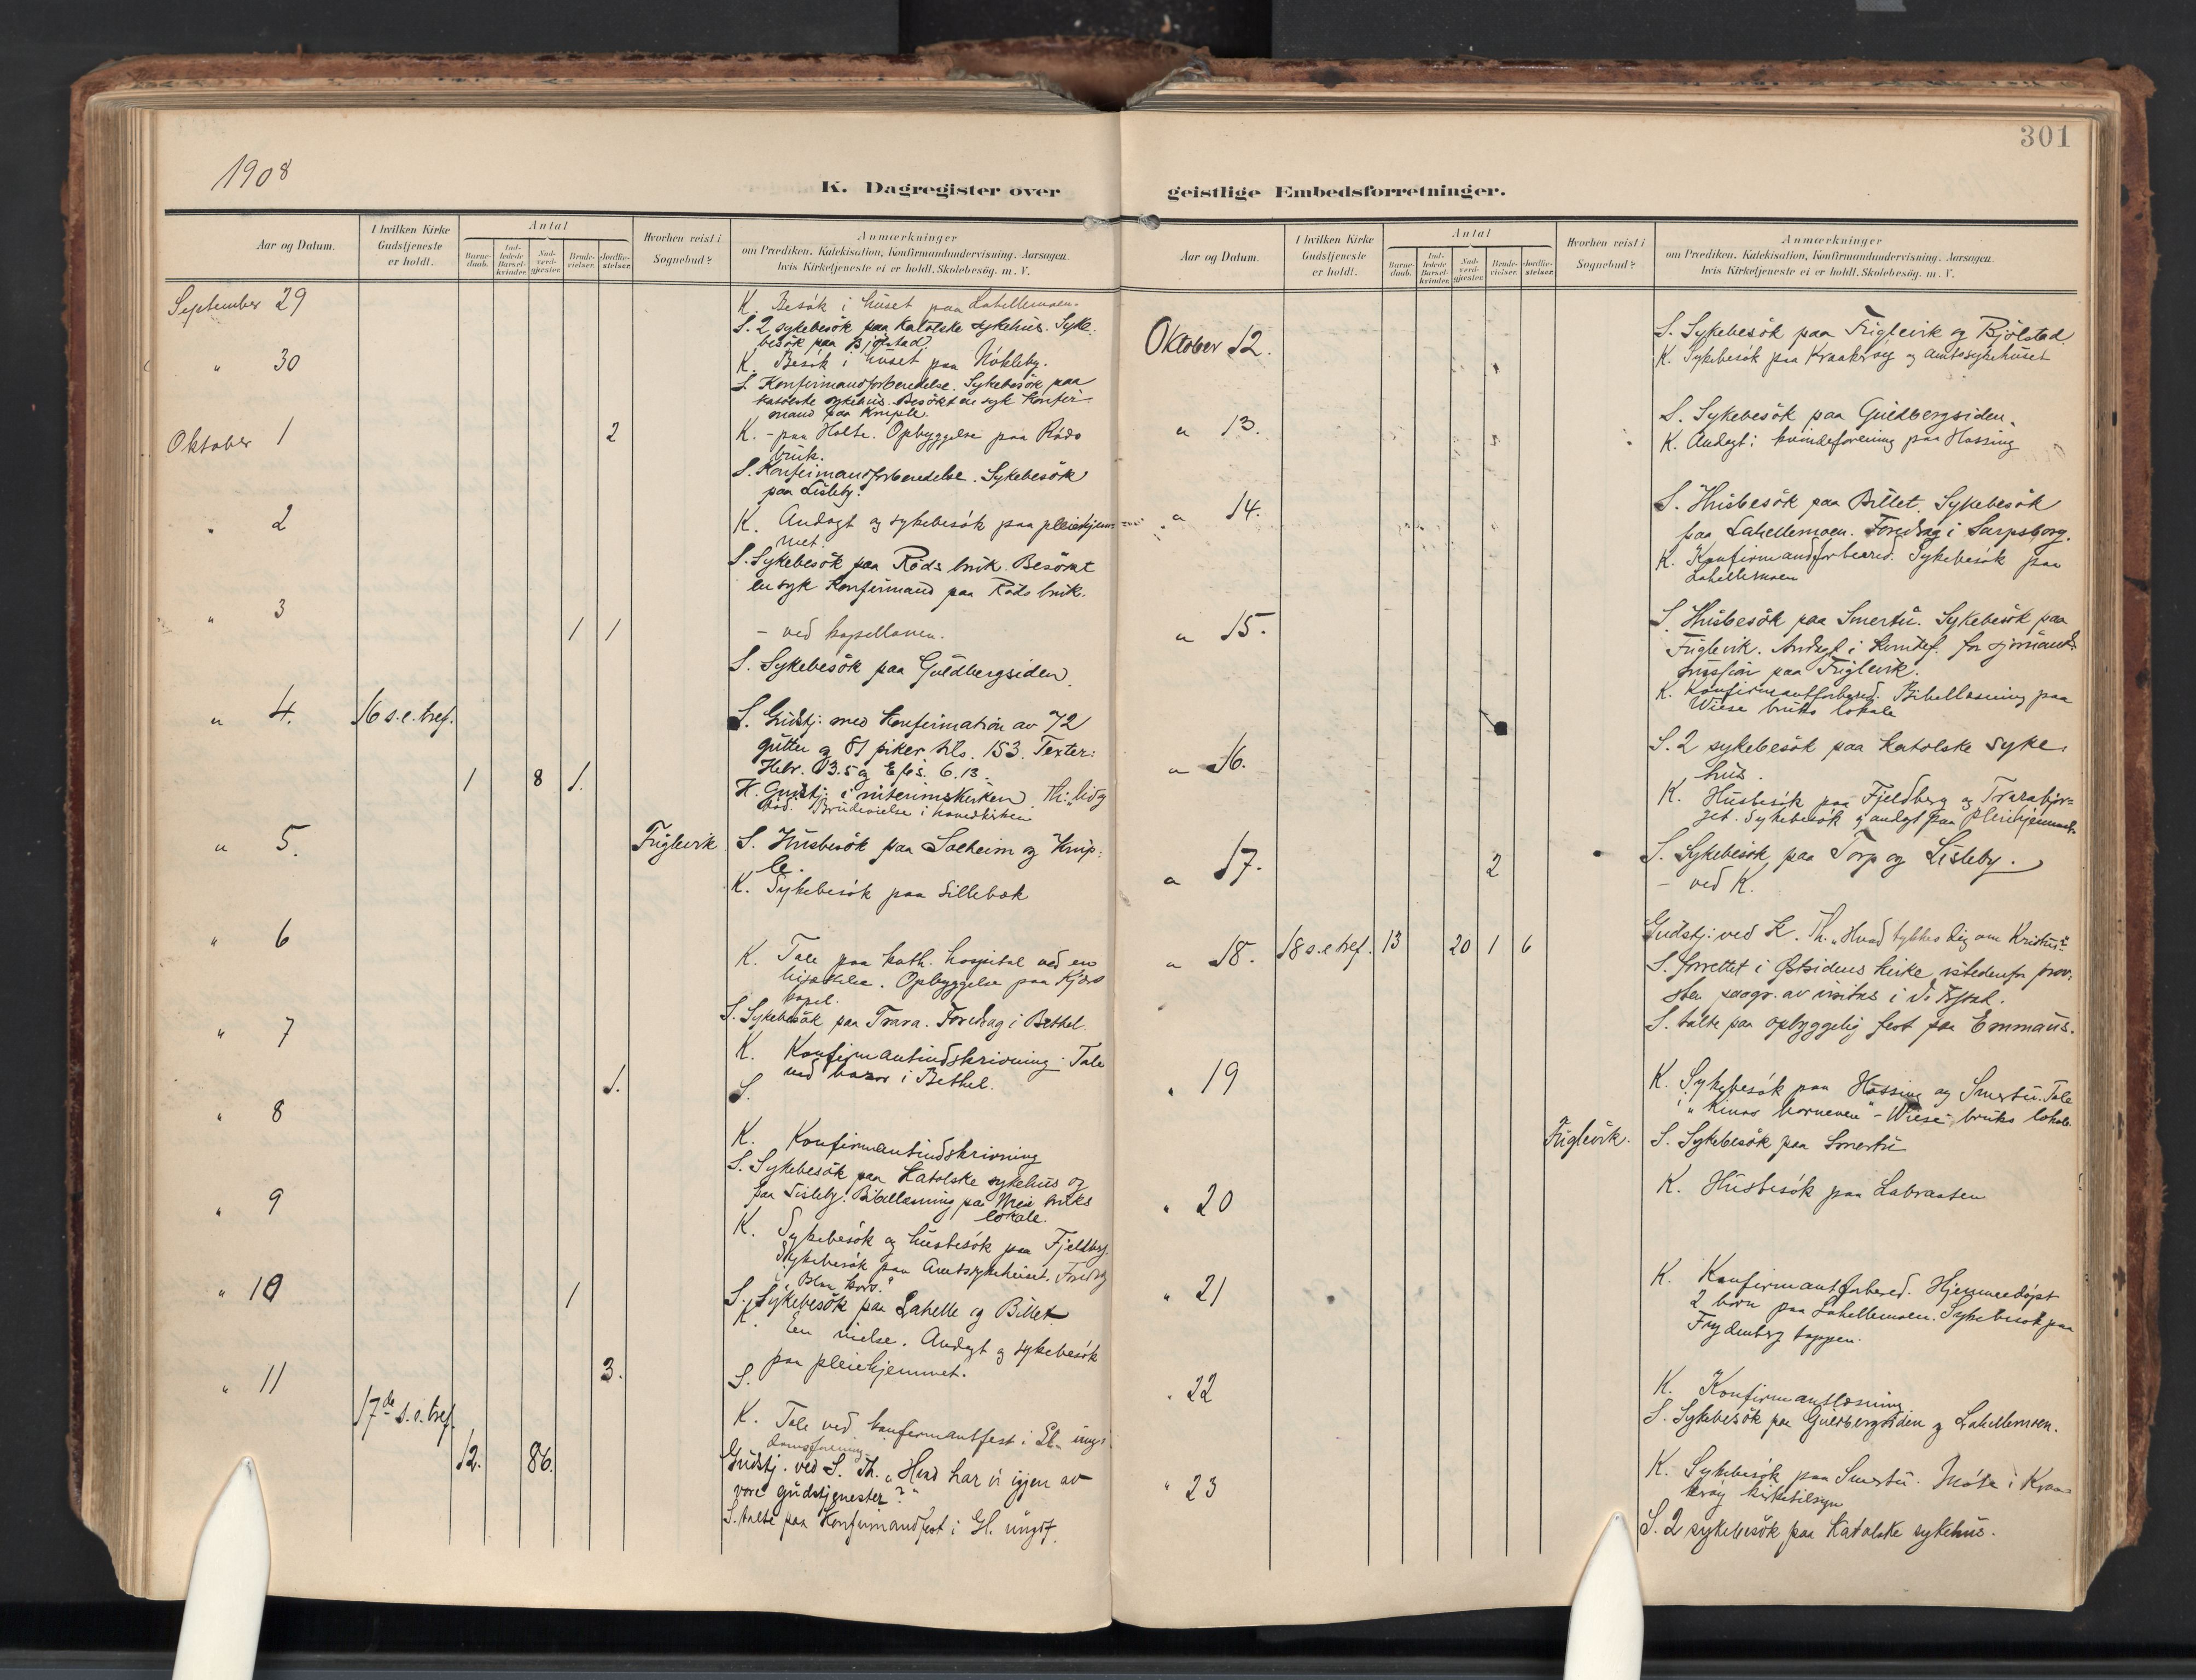 301
1908
K. Dagregister over
geistlige Embedsforretninger.
Aar og Datum.
I hvilken Kirke Gudstjeneste er holdt.
Antal
Barne-daab.
Ind-ledede Barsel-kvinder.
Nad-verd-gjester.
Brude-vielser.
Jordfæ-stelser.
Hvorhen reist i Sognebud?
Anmærkninger
om Prædiken, Katekisation, Konfirmandundervisning, Aarsagen
hvis Kirketjeneste ei er holdt, Skolebesøg. m. V.
September 29
K. Besök i huset paa Lahellemoen.
S. 2 sykebesök paa katolske sykehus. Syke-
besök paa Bjölstad.
" 30
K. Besök i huset paa Nökleby.
S. Konfirmandforberedelse. Sykebesök paa
katolske sykehus. Besökt en syk konfir-
mand paa Kniple.
Oktober 1
2
K. - paa Holte. Opbyggelse paa Röds
bruk.
S. Konfirmandforberedelse. Sykebesök
paa Lisleby.
" 2
K. Andagt og sykebesök paa pleiehjem-
met.
S. Sykebesök paa Röds bruk. Besökt
en syk konfirmand paa Röds bruk.
" 3
1 1
- ved kapellanen.
S. Sykebesök paa Guldbergsiden.
" 4.
16 s. e. tref.
S. Gudstj: med konfirmation av 72
gutter og 81 piker tils. 153. Texter:
Hebr. 13.5 og Efes. 6.13.
1 8 1.
K. Gudstj. i interimskirken. Th:
Brudevielse i hovedkirken
" 5.
Fuglevik
S. Husbesök paa Solheim og Knip-
le.
K. Sykebesök paa Lillebæk
" 6
K. Tale paa kath. hospital ved en
Opbyggelse paa
kapel.
S. Sykebesök paa Trara. Foredrag i Bethel.
" 7
K. Konfirmantindskrivning. Tale
ved bazar i Bethel.
1.
S.
" 8
K. Konfirmantindskrivning
S. Sykebesök paa Katolske sykehus og
paa Lisleby. Bibellæsning paa Wiese bruks
lokale.
" 9
K. Sykebesök og husbesök paa Fjeldberg.
Sykebesök paa Amtssykehuset. Foredrag
i "Blaa kors."
" 10
1
S. Sykebesök paa Lahelle og Billet.
K. En vielse. Andagt og sykebesök
paa pleiehjemmet.
3.
S.
" 11
17de s. e. tref.
K. Tale ved konfirmantfest i Gl. ungd
domsforening
12. 86.
Gudstj. ved S. Th. "Hvad har vi igjen av
vore gudstjenester?"
S. talte paa konfirmandfest i Gl. ungdf.
Aar og Datum.
I hvilken Kirke Gudstjeneste er holdt.
Antal
Barne-daab.
Ind-ledede Barsel-kvinder.
Nad-verd-gjester.
Brude-vielser.
Jordfæ-stelser.
Hvorhen reist i Sognebud?
Anmærkninger
om Prædiken, Katekisation, Konfirmandundervisning, Aarsagen
hvis Kirketjeneste ei er holdt, Skolebesøg. m. V.
Oktober 12.
S. Sykebesök paa Fuglevik og Bjölstad
K. Sykebesök paa Kraakeröy og amtssykehuset
" 13.
S. Sykebesök paa Guldbergsiden.
K. Andagt i kvindeforening paa Hassing
" 14.
S. Husbesök paa Billet. Sykebesök
paa Lahellemoen. Foredrag i Sarpsborg.
K. Konfirmandforbered. Sykebesök paa
Lahellemoen
" 15.
S. Husbesök paa Smertu. Sykebesök paa
Fuglevik. Andagt i kvindef. for sjömands-
mission paa Fuglevik.
K. Konfirmantforbered. Bibellæsning paa
Wiese bruks lokale
" 16.
S. 2 sykebesök paa katolske syke-
hus.
K. Husbesök paa Fjeldberg og Trarabjer-
get. Sykebesök og andagt paa pleiehjemmet.
" 17.
2
S. Sykebesök paa Torp og Lisleby.
- ved K.
" 18.
18 s. e. tref. 13 20 1 6
Gudstj: ved K. Th. "Hvad tykkes dig om Kristus?"
S. forrettet i Østsidens kirke istedenfor prov-
sten paagr. av visitas i
S. talte paa opbyggelig fest paa Emmaus.
" 19
K. Sykebesök paa Hassing og Smertu. Tale
i "Kinas - Wiese bruks lokale
Fuglevik.
S. Sykebesök paa Smertu
" 20
K. Husbesök paa Labraaten
" 21
K. Konfirmantforbered. Hjemmedöpt
2 barn paa Lahellemoen. Sykebesök paa
Frydenberg toppen.
" 22
K. Konfirmantlæsning
S. Sykebesök paa Guldbergsiden og Lahellemoen.
" 23
K. Sykebesök paa Smertu. Möte i Kraa-
keröy kirketilsyn
S. 2 sykebesök paa Katolske sykehus.